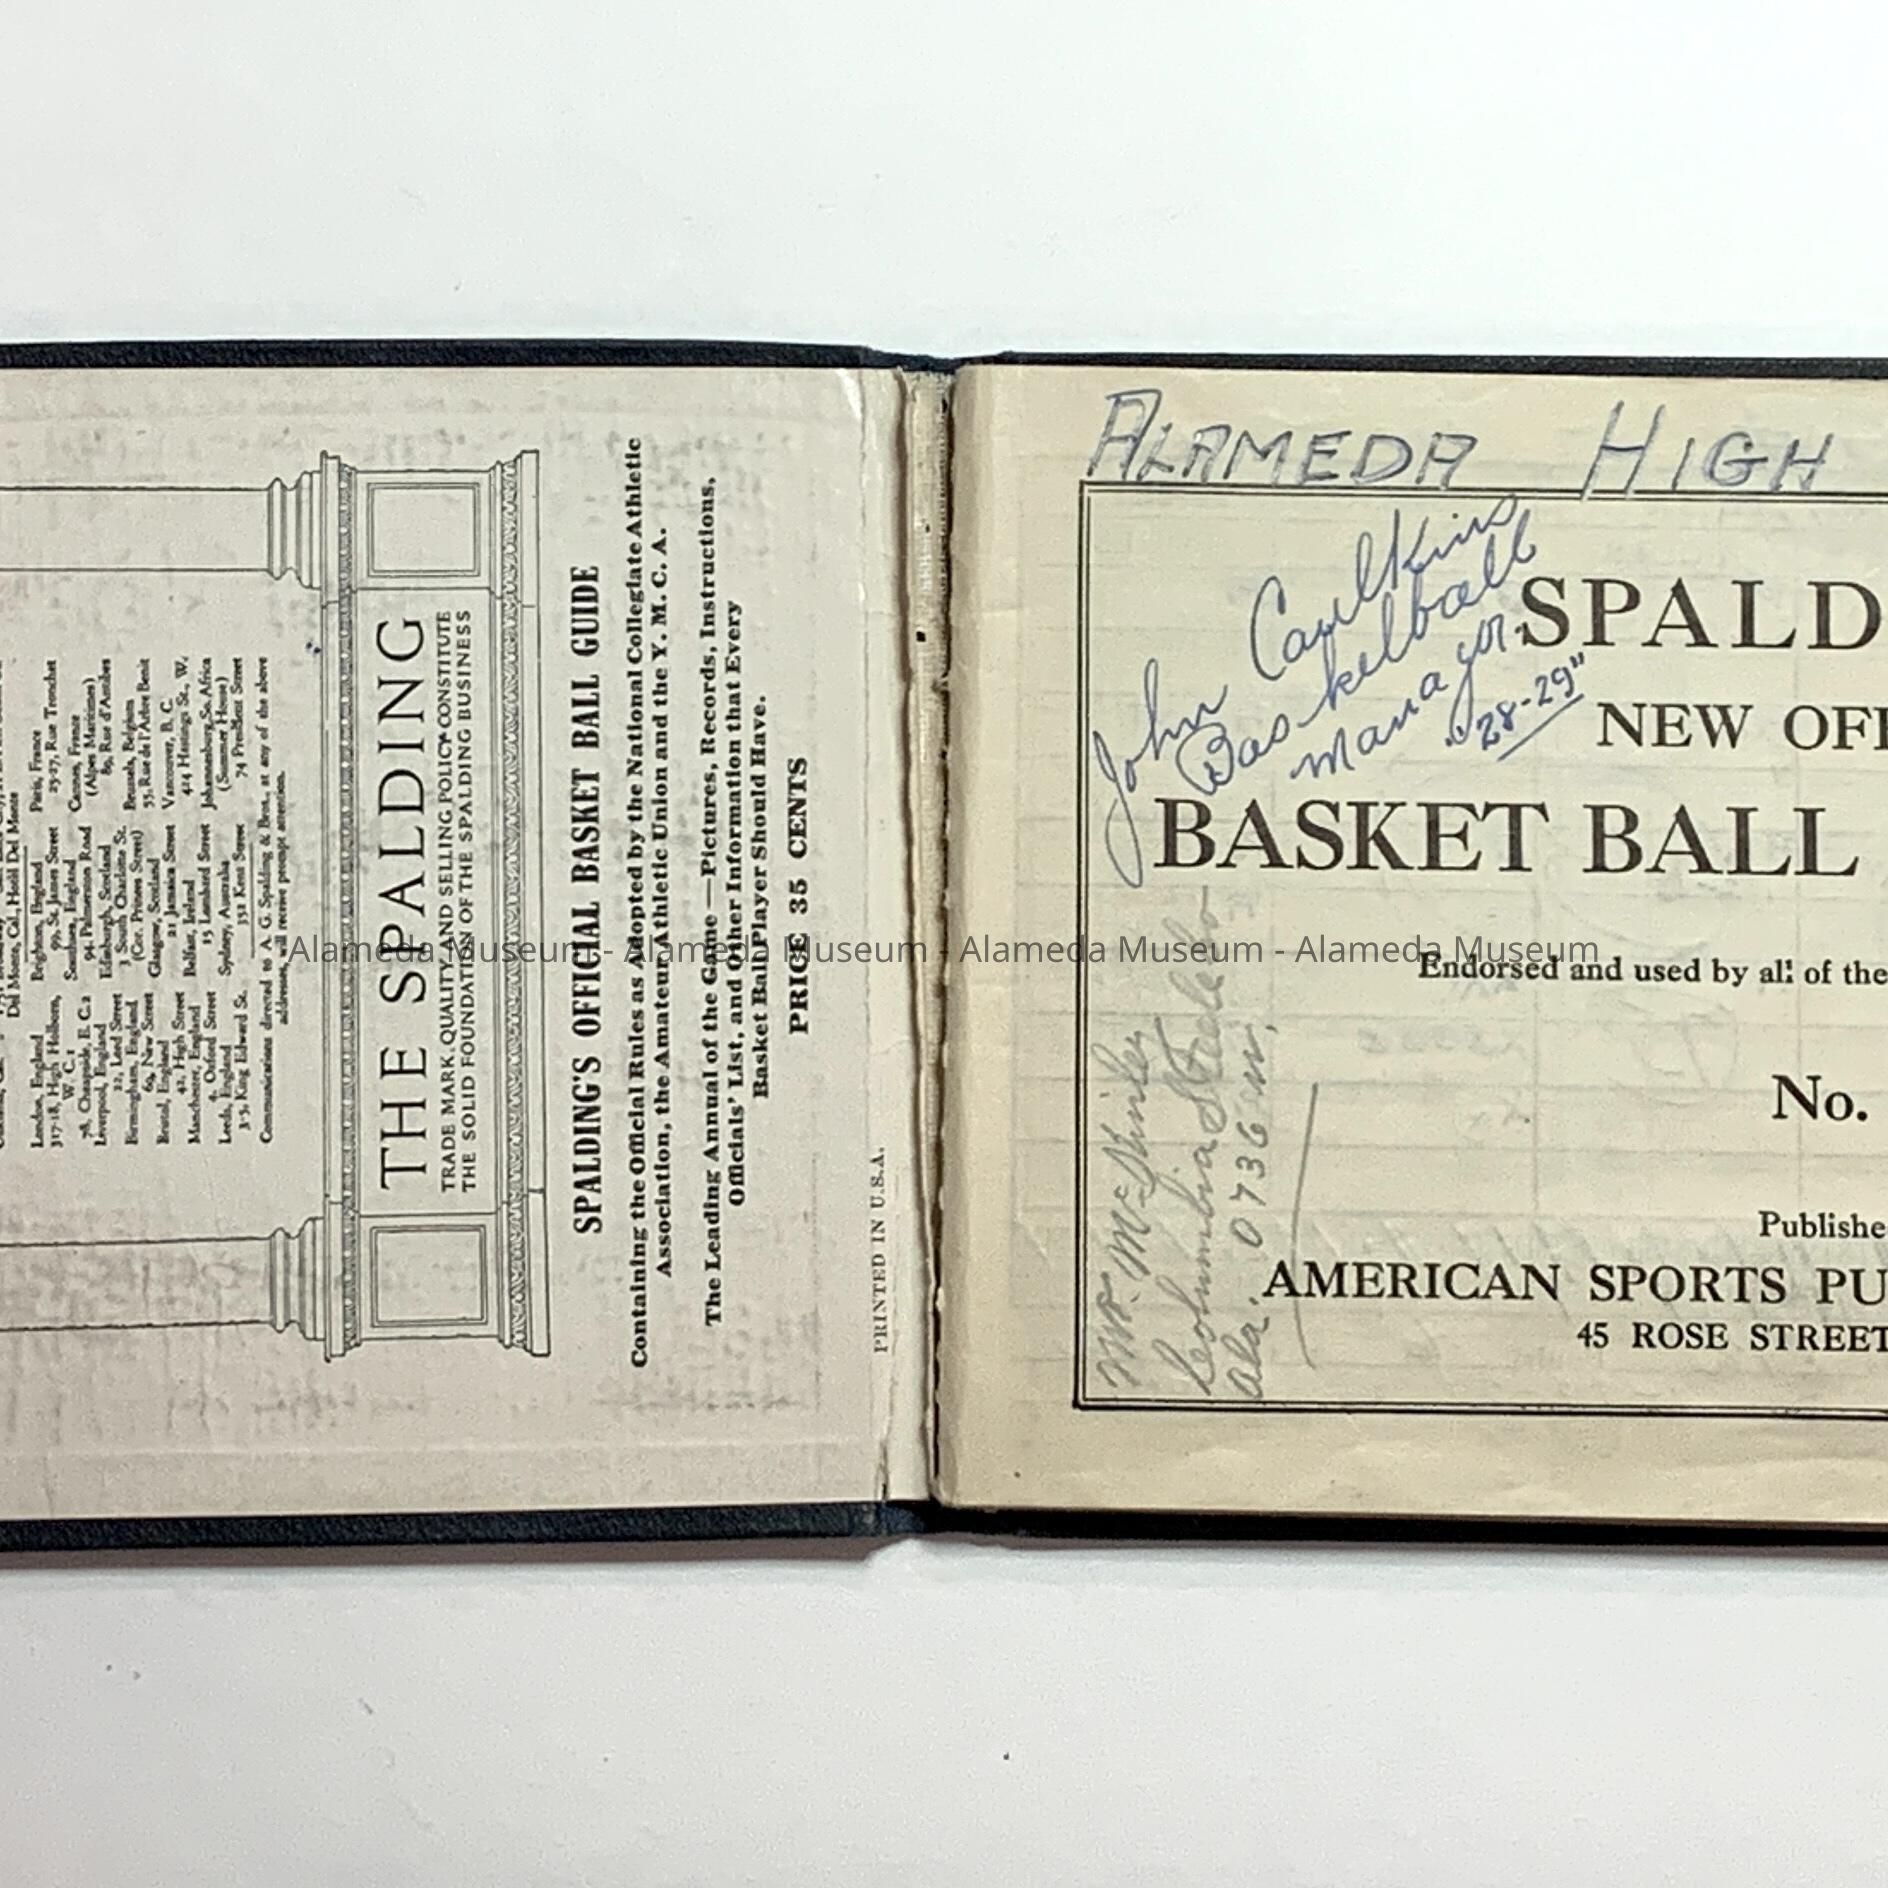 Del Monte, Cal., Hotel Del Monte
London, England
317-18, High Holborn,
W. C. 1
78, Cheapside, E. C. 2
Liverpool, England
22, Lord Street
Birmingham, England
69, New Street
Bristol, England
42, High Street
Manchester, England
4, Oxford Street
Leeds, England
3-5, King Edward St.
Brighton, England
99, St. James Street
Southsea, England
94, Palmerston Road
Edinburgh, Scotland
3 South Charlotte St.
(Cor. Princes Street)
Glasgow, Scotland
21 Jamaica Street
Belfast, Ireland
15 Lombard Street
Sydney, Australia
352 Kent Street
Paris, France
25-27, Rue Tronchet
Cannes, France
(Alpes Maritimes)
80, Rue d'Antibes
Brussels, Belgium
55, Rue de l'Arbre Benit
Vancouver, B. C.
424 Hastings St., W.
Johannesburg, So. Africa
(Summer House)
74 President Street
Communications directed to A. G. Spalding & Bros., at any of the above
addresses, will receive prompt attention.
THE SPALDING
TRADE MARK, QUALITY AND SELLING POLICY CONSTITUTE
THE SOLID FOUNDATION OF THE SPALDING BUSINESS
SPALDING'S OFFICIAL BASKET BALL GUIDE
Containing the Official Rules as Adopted by the National Collegiate Athletic
Association, the Amateur Athletic Union and the Y. M. C. A.
The Leading Annual of the Game—Pictures, Records, Instructions,
Officials' List, and Other Information that Every
Basket Ball Player Should Have.
PRICE 35 CENTS
PRINTED IN U.S.A.
ALAMEDA HIGH
John Caulkins
Basketball
Manager
"28-29"
SPALD
NEW OFF
BASKET BALL
Endorsed and used by all of the
No.
Publishe
AMERICAN SPORTS PU
45 ROSE STREET
Columbia
Ala. 0736
Alameda Museum - Alameda Museum - Alameda Museum - Alameda Museum